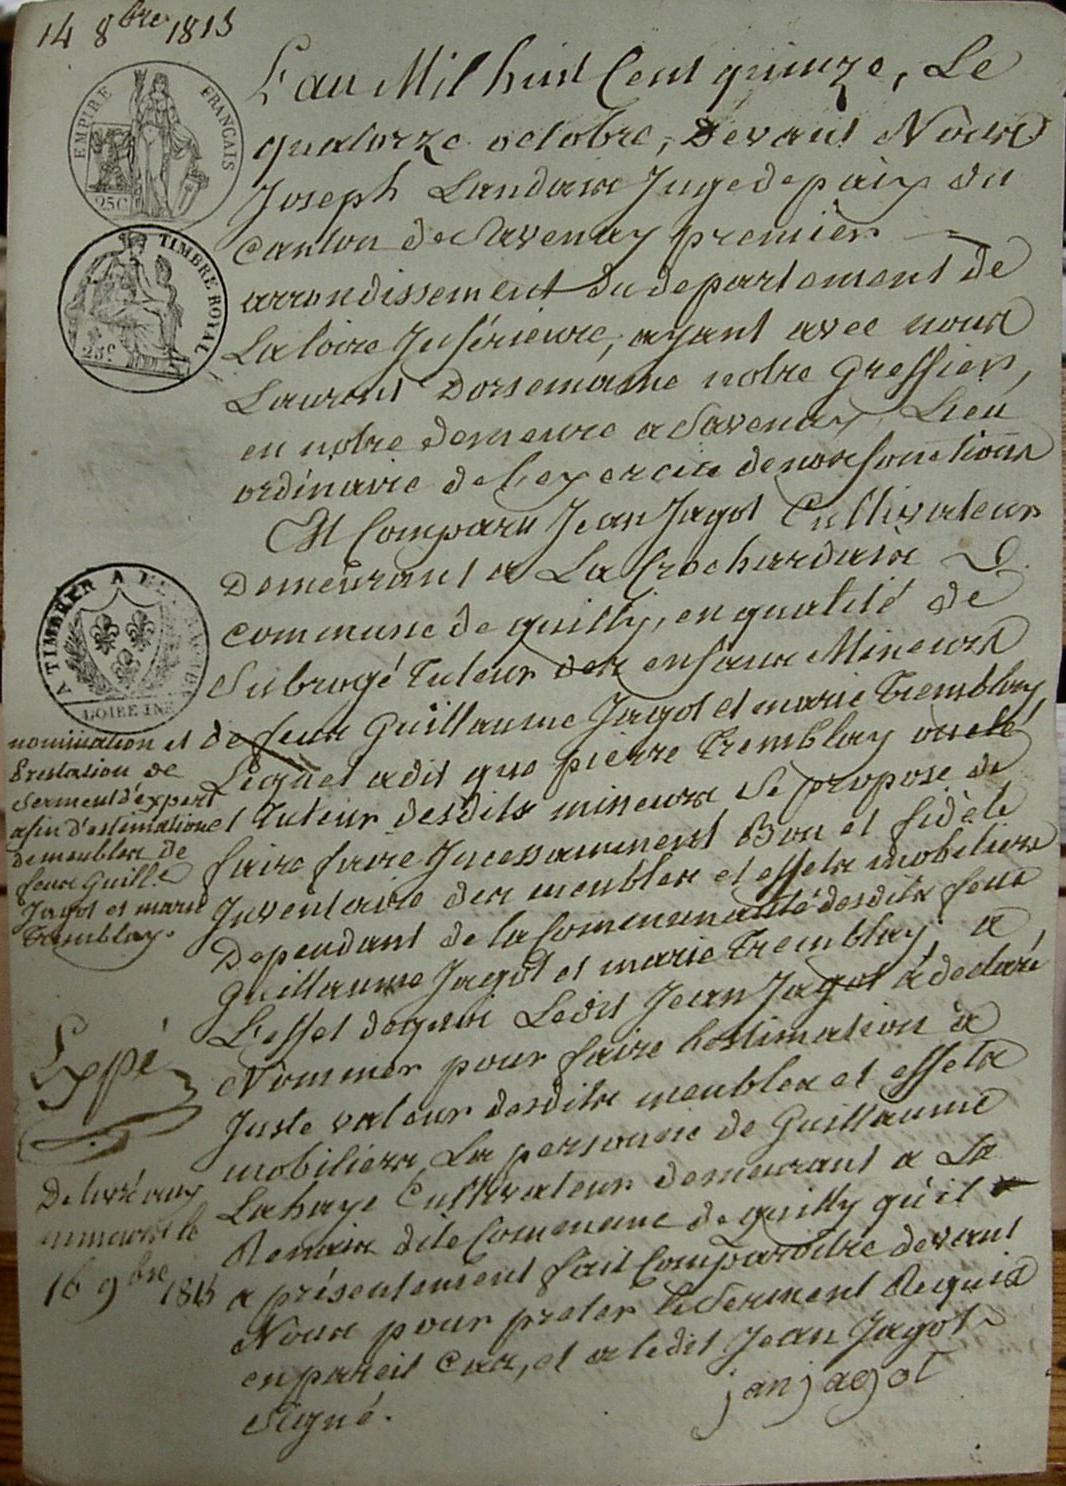 14 8bre 1815
EMPIRE FRANÇAIS
25C
TIMBRE ROYAL
25c
L'an Mil huit Cent quinze, Le
quatorze octobre, Devant Nous
Joseph Landais Juge de paix du
Canton de Savenay premier
arrondissement du departement de
La loire Inférieure, ayant avec nous
Laurent Dorsemaine notre Greffier,
en notre demeure a Savenay, Lieu
ordinaire de l'exercice de nos fonctions
Est Comparu Jean Jagot Cultivateur
Demeurant a La Crochardais
commune de quilly, en qualité de
Subrogé Tuteur des enfans Mineurs
de feux Guillaume Jagot et marie Tremblay,
Lequel a dit que pierre Tremblay oncle
et Tuteur desdits mineurs Se propose de
faire faire Incessamment Bon et fidèle
Inventaire des meubles et effets mobiliers
Dependant de la Communauté desdits feux
Guillaume Jagot et marie Tremblay, a
L'effet de quoi Ledit Jean Jagot a declaré
Nommer pour faire l'estimation a
Juste valeur desdits meubles et effets
mobiliers, La personne de Guillaume
Lahaye Cultivateur demeurant a La
Renais dite Commune de quilly qu'il
a présentement fait Comparoitre devant
Nous pour preter le Serment Requis
en pareil Cas, et a ledit Jean Jagot
Signé.
jan jagot
A TIMBRER A L'EXTRAORD
LOIRE INF
nomination et
Prestation de
Serment d'expert
afin d'estimation
de meubles de
feux Guill.e
Jagot et marie
Tremblay.
Expé
Delivré aux
le
16 9bre 1815